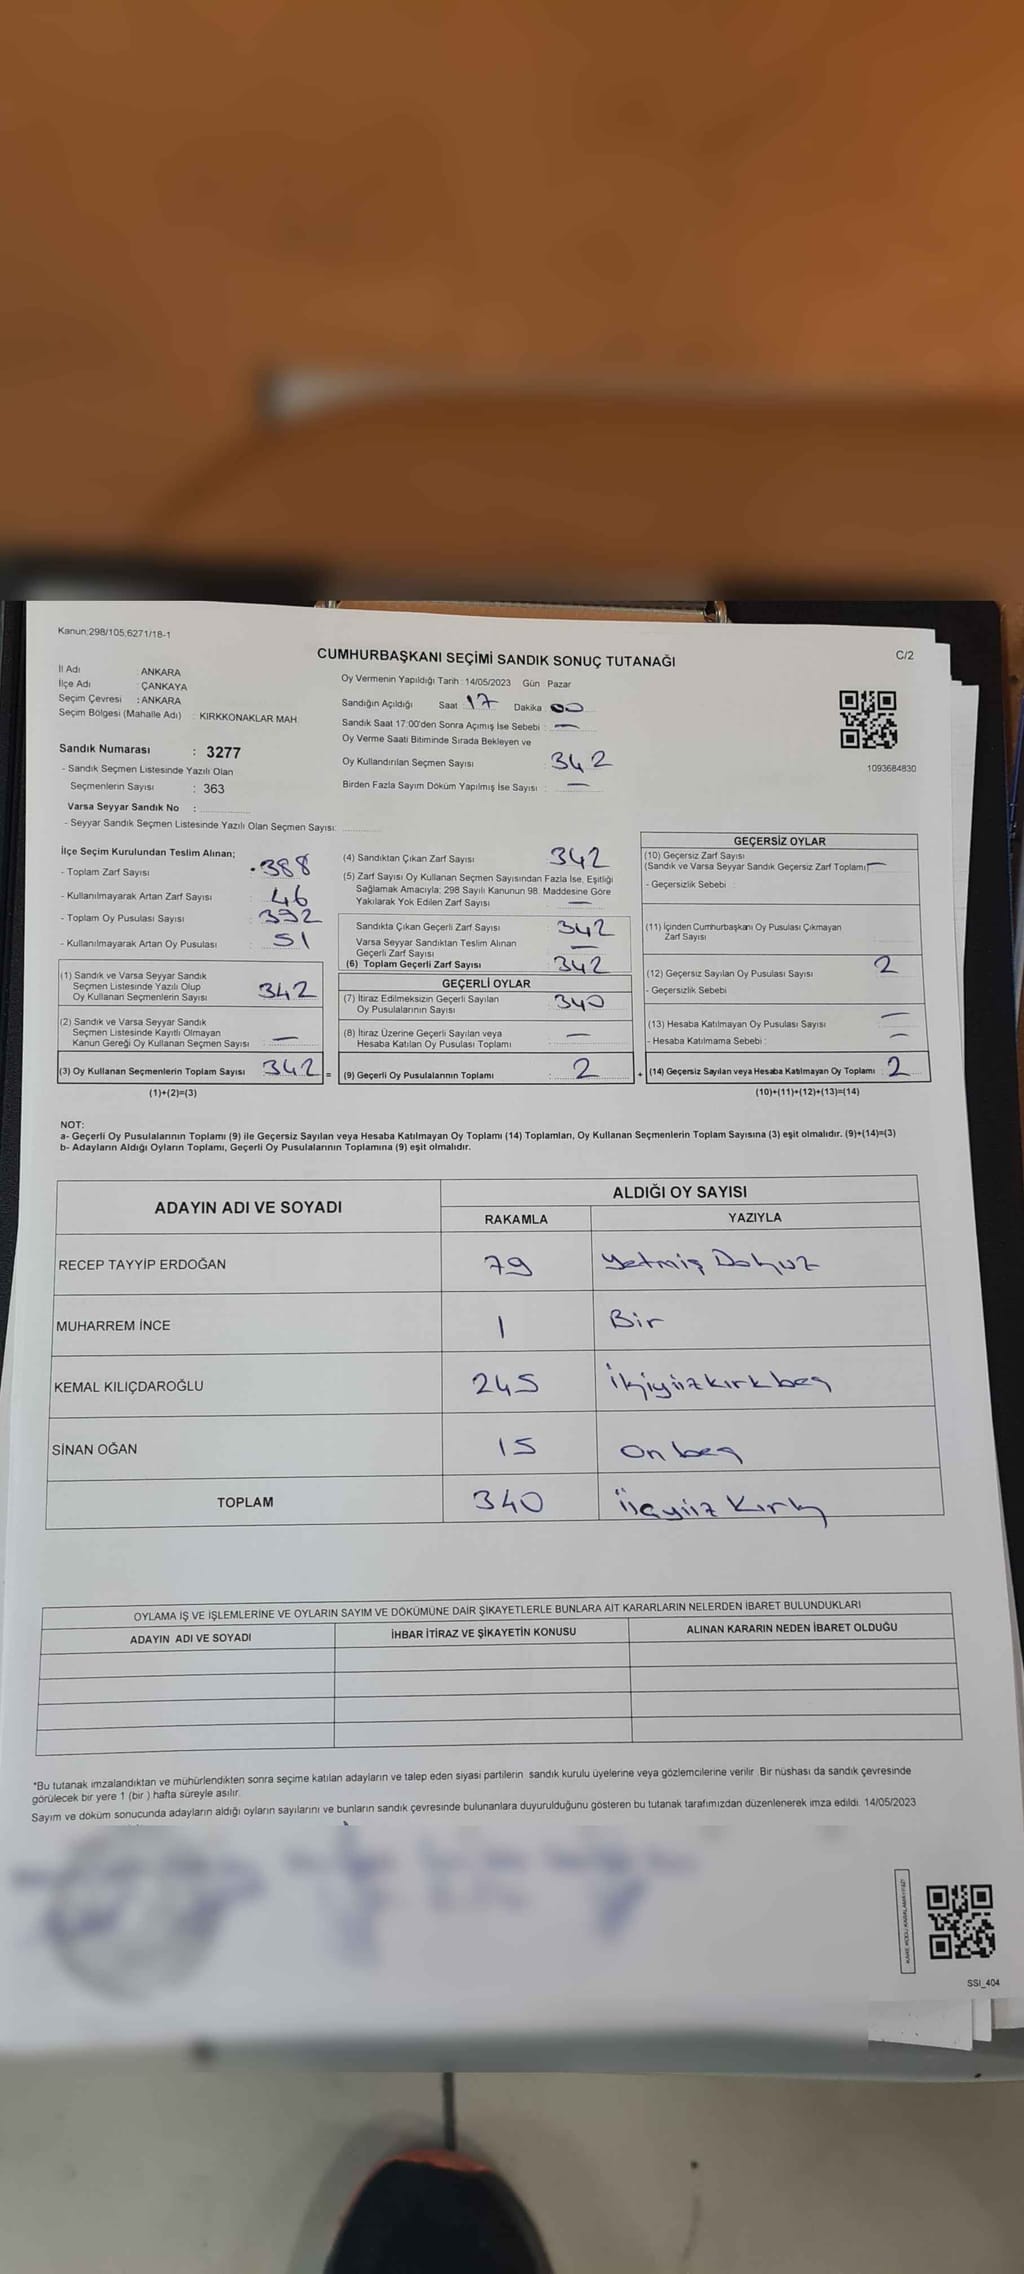 Kanun;298/105,6271/18-1
CUMHURBAŞKANI SEÇİMİ SANDIK SONUÇ TUTANAĞI
C/2
İl Adı : ANKARA
İlçe Adı : ÇANKAYA
Seçim Çevresi : ANKARA
Seçim Bölgesi (Mahalle Adı) : KIRKKONAKLAR MAH.
Sandık Numarası : 3277
- Sandık Seçmen Listesinde Yazılı Olan
Seçmenlerin Sayısı : 363
Varsa Seyyar Sandık No :
- Seyyar Sandık Seçmen Listesinde Yazılı Olan Seçmen Sayısı:
Oy Vermenin Yapıldığı Tarih : 14/05/2023 Gün : Pazar
Sandığın Açıldığı Saat 17 Dakika : 00
Sandık Saat 17:00'den Sonra Açımış İse Sebebi : —
Oy Verme Saati Bitiminde Sırada Bekleyen ve
Oy Kullandırılan Seçmen Sayısı 342
Birden Fazla Sayım Döküm Yapılmış İse Sayısı : —
1093684830
İlçe Seçim Kurulundan Teslim Alınan;
- Toplam Zarf Sayısı 388
- Kullanılmayarak Artan Zarf Sayısı 46
- Toplam Oy Pusulası Sayısı 392
- Kullanılmayarak Artan Oy Pusulası 51
(1) Sandık ve Varsa Seyyar Sandık
Seçmen Listesinde Yazılı Olup
Oy Kullanan Seçmenlerin Sayısı 342
(2) Sandık ve Varsa Seyyar Sandık
Seçmen Listesinde Kayıtlı Olmayan
Kanun Gereği Oy Kullanan Seçmen Sayısı —
(3) Oy Kullanan Seçmenlerin Toplam Sayısı 342 =
(1)+(2)=(3)
(4) Sandıktan Çıkan Zarf Sayısı 342
(5) Zarf Sayısı Oy Kullanan Seçmen Sayısından Fazla İse, Eşitliği
Sağlamak Amacıyla; 298 Sayılı Kanunun 98. Maddesine Göre
Yakılarak Yok Edilen Zarf Sayısı —
Sandıkta Çıkan Geçerli Zarf Sayısı 342
Varsa Seyyar Sandıktan Teslim Alınan
Geçerli Zarf Sayısı —
(6) Toplam Geçerli Zarf Sayısı 342
GEÇERLİ OYLAR
(7) İtiraz Edilmeksizin Geçerli Sayılan
Oy Pusulalarının Sayısı 340
(8) İtiraz Üzerine Geçerli Sayılan veya
Hesaba Katılan Oy Pusulası Toplamı —
(9) Geçerli Oy Pusulalarının Toplamı 2 +
GEÇERSİZ OYLAR
(10) Geçersiz Zarf Sayısı
(Sandık ve Varsa Seyyar Sandık Geçersiz Zarf Toplamı) —
- Geçersizlik Sebebi :
(11) İçinden Cumhurbaşkanı Oy Pusulası Çıkmayan
Zarf Sayısı
(12) Geçersiz Sayılan Oy Pusulası Sayısı 2
- Geçersizlik Sebebi
(13) Hesaba Katılmayan Oy Pusulası Sayısı —
- Hesaba Katılmama Sebebi : —
(14) Geçersiz Sayılan veya Hesaba Katılmayan Oy Toplamı : 2
(10)+(11)+(12)+(13)=(14)
NOT:
a- Geçerli Oy Pusulalarının Toplamı (9) ile Geçersiz Sayılan veya Hesaba Katılmayan Oy Toplamı (14) Toplamları, Oy Kullanan Seçmenlerin Toplam Sayısına (3) eşit olmalıdır. (9)+(14)=(3)
b- Adayların Aldığı Oyların Toplamı, Geçerli Oy Pusulalarının Toplamına (9) eşit olmalıdır.
ADAYIN ADI VE SOYADI ALDIĞI OY SAYISI
RAKAMLA YAZIYLA
RECEP TAYYİP ERDOĞAN 79 Yetmiş Dokuz
MUHARREM İNCE 1 Bir
KEMAL KILIÇDAROĞLU 245 İkiyüzkırkbeş
SİNAN OĞAN 15 On beş
TOPLAM 340 üçyüz kırk
OYLAMA İŞ VE İŞLEMLERİNE VE OYLARIN SAYIM VE DÖKÜMÜNE DAİR ŞİKAYETLERLE BUNLARA AİT KARARLARIN NELERDEN İBARET BULUNDUKLARI
ADAYIN ADI VE SOYADI İHBAR İTİRAZ VE ŞİKAYETİN KONUSU ALINAN KARARIN NEDEN İBARET OLDUĞU
*Bu tutanak imzalandıktan ve mühürlendikten sonra seçime katılan adayların ve talep eden siyasi partilerin sandık kurulu üyelerine veya gözlemcilerine verilir. Bir nüshası da sandık çevresinde
görülecek bir yere 1 (bir ) hafta süreyle asılır.
Sayım ve döküm sonucunda adayların aldığı oyların sayılarını ve bunların sandık çevresinde bulunanlara duyurulduğunu gösteren bu tutanak tarafımızdan düzenlenerek imza edildi. 14/05/2023
SSI_404